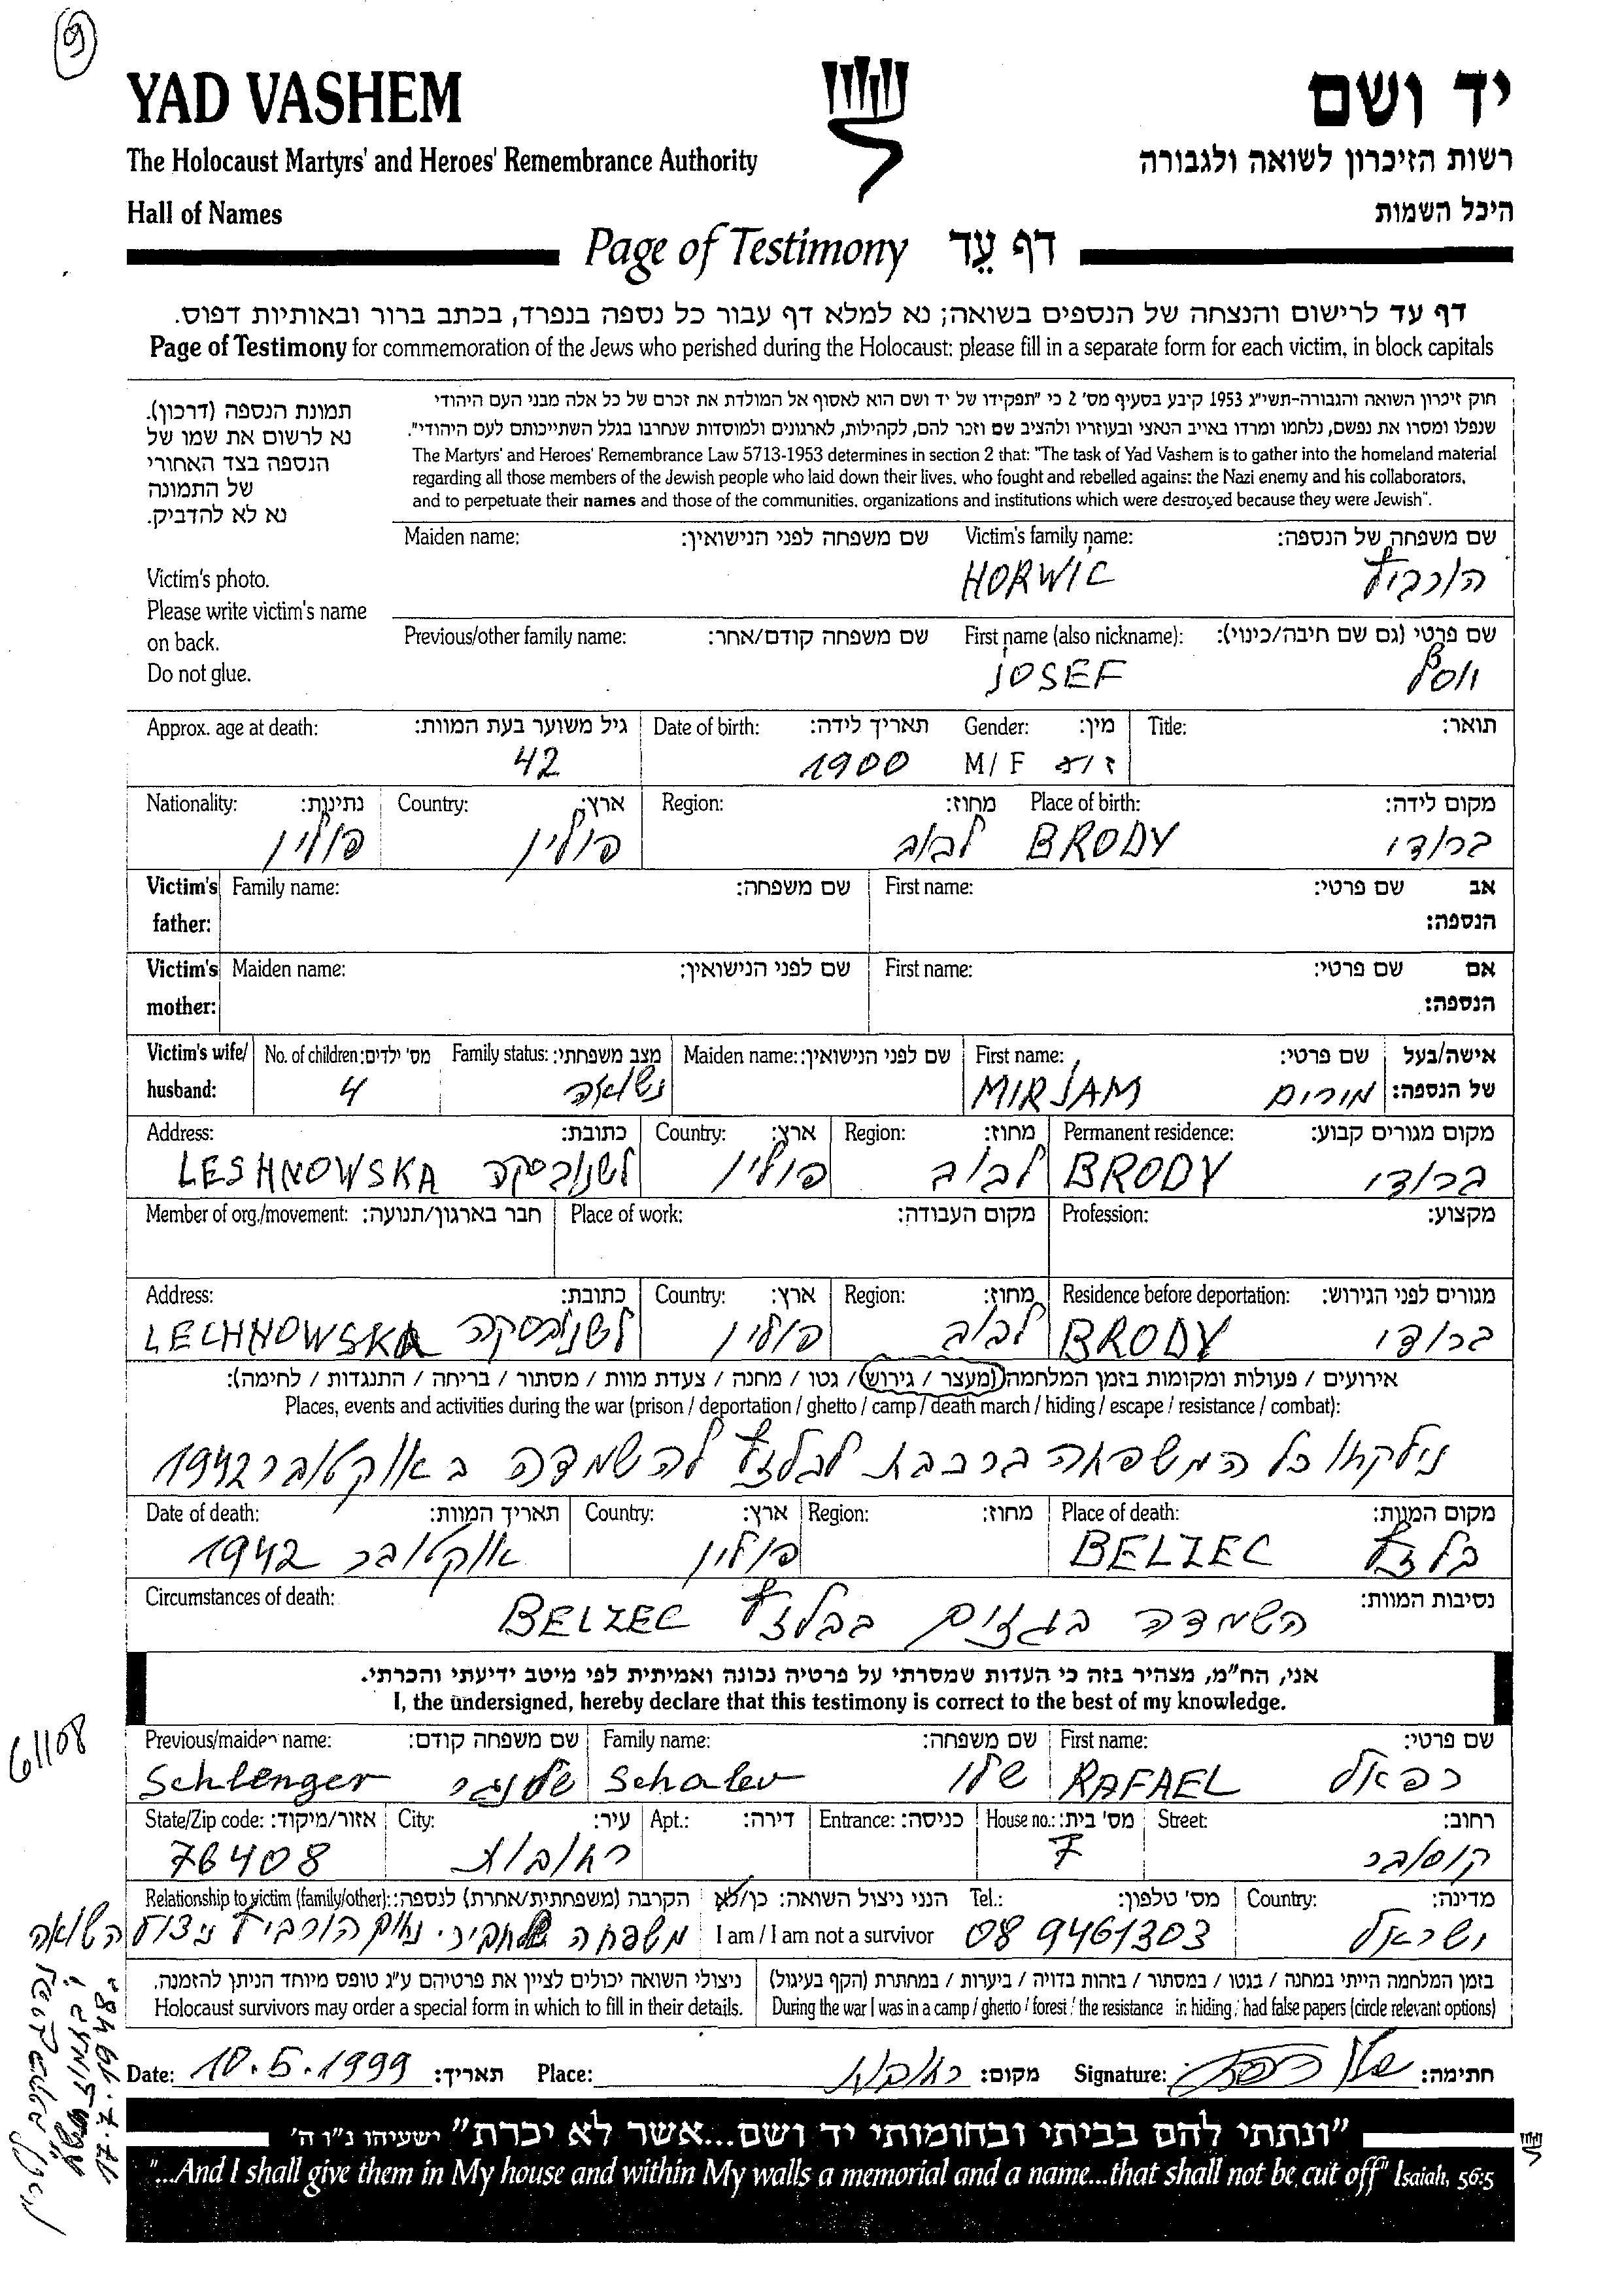 YAD VASHEM
יד ושם
The Holocaust Martyrs' and Heroes' Remembrance Authority
רשות הזיכרון לשואה ולגבורה
Hall of Names
היכל השמות
Page of Testimony דף עֵד
דף עד לרישום והנצחה של הנספים בשואה; נא למלא דף עבור כל נספה בנפרד, בכתב ברור ובאותיות דפוס.
Page of Testimony for commemoration of the Jews who perished during the Holocaust: please fill in a separate form for each victim, in block capitals
תמונת הנספה (דרכון).
נא לרשום את שמו של
הנספה בצד האחורי
של התמונה
נא לא להדביק.
Victim's photo.
Please write victim's name
on back.
Do not glue.
חוק זיכרון השואה והגבורה-תשי"ג 1953 קיבע בסעיף מס' 2 כי "תפקידו של יד ושם הוא לאסוף אל המולדת את זכרם של כל אלה מבני העם היהודי
שנפלו ומסרו את נפשם, נלחמו ומרדו באויב הנאצי ובעוזריו ולהציב שם וזכר להם, לקהילות, לארגונים ולמוסדות שנחרבו בגלל השתייכותם לעם היהודי".
The Martyrs' and Heroes' Remembrance Law 5713-1953 determines in section 2 that: "The task of Yad Vashem is to gather into the homeland material
regarding all those members of the Jewish people who laid down their lives, who fought and rebelled against the Nazi enemy and his collaborators,
and to perpetuate their names and those of the communities, organizations and institutions which were destroyed because they were Jewish".
Maiden name: שם משפחה לפני הנישואין: Victim's family name: שם משפחה של הנספה:
HORWIC הורביץ
Previous/other family name: שם משפחה קודם/אחר: First name (also nickname): שם פרטי (גם שם חיבה/כינוי):
JOSEF יוסף
Approx. age at death: גיל משוער בעת המוות: Date of birth: תאריך לידה: Gender: מין: Title: תואר:
42 1900 M/F ז/נ
Nationality: נתינות: Country: ארץ: Region: מחוז: Place of birth: מקום לידה:
פולין פולין לבוב BRODY ברודי
Victim's father: Family name: שם משפחה: First name: שם פרטי: אב הנספה:
Victim's mother: Maiden name: שם לפני הנישואין: First name: שם פרטי: אם הנספה:
Victim's wife/ husband: No. of children: מס' ילדים: Family status: מצב משפחתי: Maiden name: שם לפני הנישואין: First name: שם פרטי: אישה/בעל של הנספה:
4 נשואה MIRJAM מירים
Address: כתובת: Country: ארץ: Region: מחוז: Permanent residence: מקום מגורים קבוע:
LESHNOWSKA לשנובסקה פולין לבוב BRODY ברודי
Member of org./movement: חבר בארגון/תנועה: Place of work: מקום העבודה: Profession: מקצוע:
Address: כתובת: Country: ארץ: Region: מחוז: Residence before deportation: מגורים לפני הגירוש:
LECHNOWSKA לשנובסקה פולין לבוב BRODY ברודי
אירועים / פעולות ומקומות בזמן המלחמה (מעצר / גירוש / גטו / מחנה / צעדת מוות / מסתור / בריחה / התנגדות / לחימה):
Places, events and activities during the war (prison / deportation / ghetto / camp / death march / hiding / escape / resistance / combat):
נילקחו כל המשפחה ברכבת לבלזץ להשמדה באוקטובר 1942
Date of death: תאריך המוות: Country: ארץ: Region: מחוז: Place of death: מקום המוות:
אוקטובר 1942 פולין BELZEC בלזץ
Circumstances of death: נסיבות המוות:
השמדה בגזים בבלזץ BELZEC
אני, הח"מ, מצהיר בזה כי העדות שמסרתי על פרטיה נכונה ואמיתית לפי מיטב ידיעתי והכרתי.
I, the undersigned, hereby declare that this testimony is correct to the best of my knowledge.
Previous/maiden name: שם משפחה קודם: Family name: שם משפחה: First name: שם פרטי:
Schlenger שלנגר Schalev שלו RAFAEL רפאל
State/Zip code: אזור/מיקוד: City: עיר: Apt.: דירה: Entrance: כניסה: House no.: מס' בית: Street: רחוב:
76408 רחובות 7
Relationship to victim (family/other): הקרבה (משפחתית/אחרת) לנספה: הנני ניצול השואה: כן/לא Tel.: מס' טלפון: Country: מדינה:
I am / I am not a survivor 08 9461303 ישראל
הורביץ ניצול השואה
ניצולי השואה יכולים לציין את פרטיהם ע"ג טופס מיוחד הניתן להזמנה.
Holocaust survivors may order a special form in which to fill in their details.
בזמן המלחמה הייתי במחנה / בגטו / במסתור / בזהות בדויה / ביערות / במחתרת (הקף בעיגול)
During the war I was in a camp / ghetto / forest / the resistance in hiding / had false papers (circle relevant options)
Date: 10.5.1999 תאריך: Place: רחובות מקום: Signature: חתימה:
"ונתתי להם בביתי ובחומותי יד ושם...אשר לא יכרת" ישעיהו נ"ו ה'
"...And I shall give them in My house and within My walls a memorial and a name...that shall not be cut off" Isaiah, 56:5